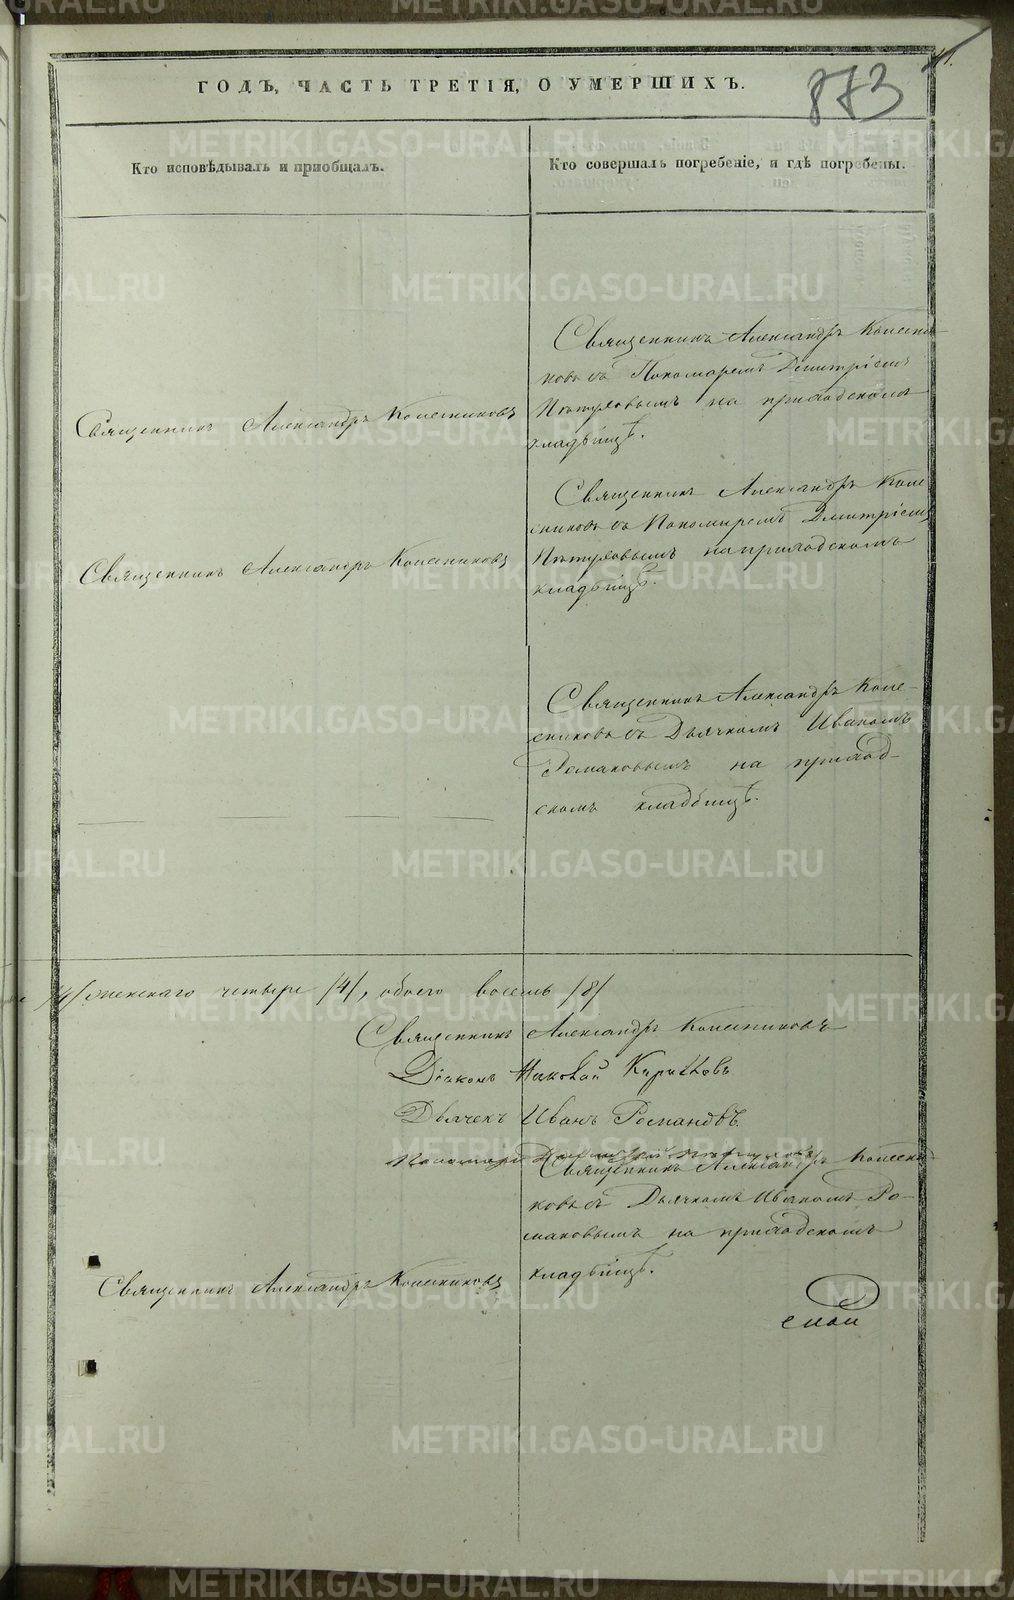 873
ГОДЪ, ЧАСТЬ ТРЕТІЯ, О УМЕРШИХЪ.
Кто исповѣдывалъ и пріобщалъ.
Кто совершалъ погребеніе, и гдѣ погребены.
Священникъ Александръ Колесниковъ
Священникъ Александръ Колесни-
ковъ съ Пономаремъ Димитріемъ
на приходскомъ
кладбищѣ.
Священникъ Александръ Колесниковъ
Священникъ Александръ Коле
сниковъ съ Пономаремъ Дмитріемъ
на приходскомъ
кладбищѣ.
Священникъ Александръ Коле-
сниковъ съ Дьячкомъ Иваномъ
Романовымъ на приход-
скомъ кладбищѣ.
/4/ женскаго четыре /4/, обоего восемь /8/
Священникъ Александръ Колесниковъ
Діаконъ Николай
Дьячекъ Иванъ Романовъ.
Пономарь Димитрій
Священникъ Александръ Колесниковъ
Священникъ Александръ Колесни-
ковъ съ Дьячкомъ Иваномъ Ро-
мановымъ на приходскомъ
кладбищѣ.
METRIKI.GASO-URAL.RU